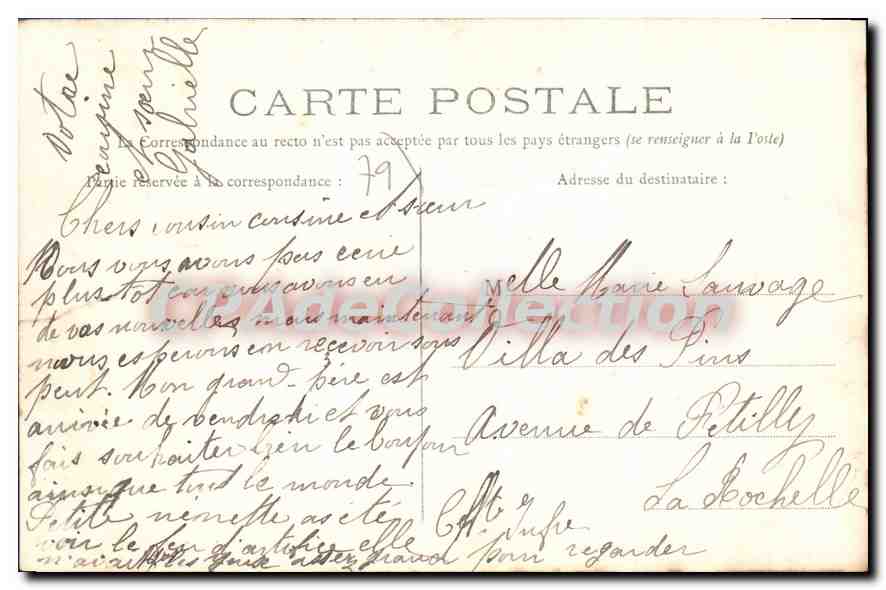 CARTE POSTALE
La Correspondance au recto n'est pas acceptée par tous les pays étrangers (se renseigner à la Poste)
Partie réservée à la correspondance :
79
Adresse du destinataire :
Chers cousin cousine et sœur
Nous vous avons pas ecrie
plus tot car nous avons eu
de vos nouvelles mais maintenant
nous esperons en recevoir sous
peut. Mon grand-père est
arrivée de vendredi et vous
fais souhaiter bien le bonjour
ainsi que tout le monde
Petite nénette as été
voir le feu d'artifice elle
n'avait pour regarder
Votre
cousine
et sœur
Gabrielle
Melle Marie Sauvage
Villa des Pins
Avenue de Fetilly
La Rochelle
Chte Infre
CPAdeCollection